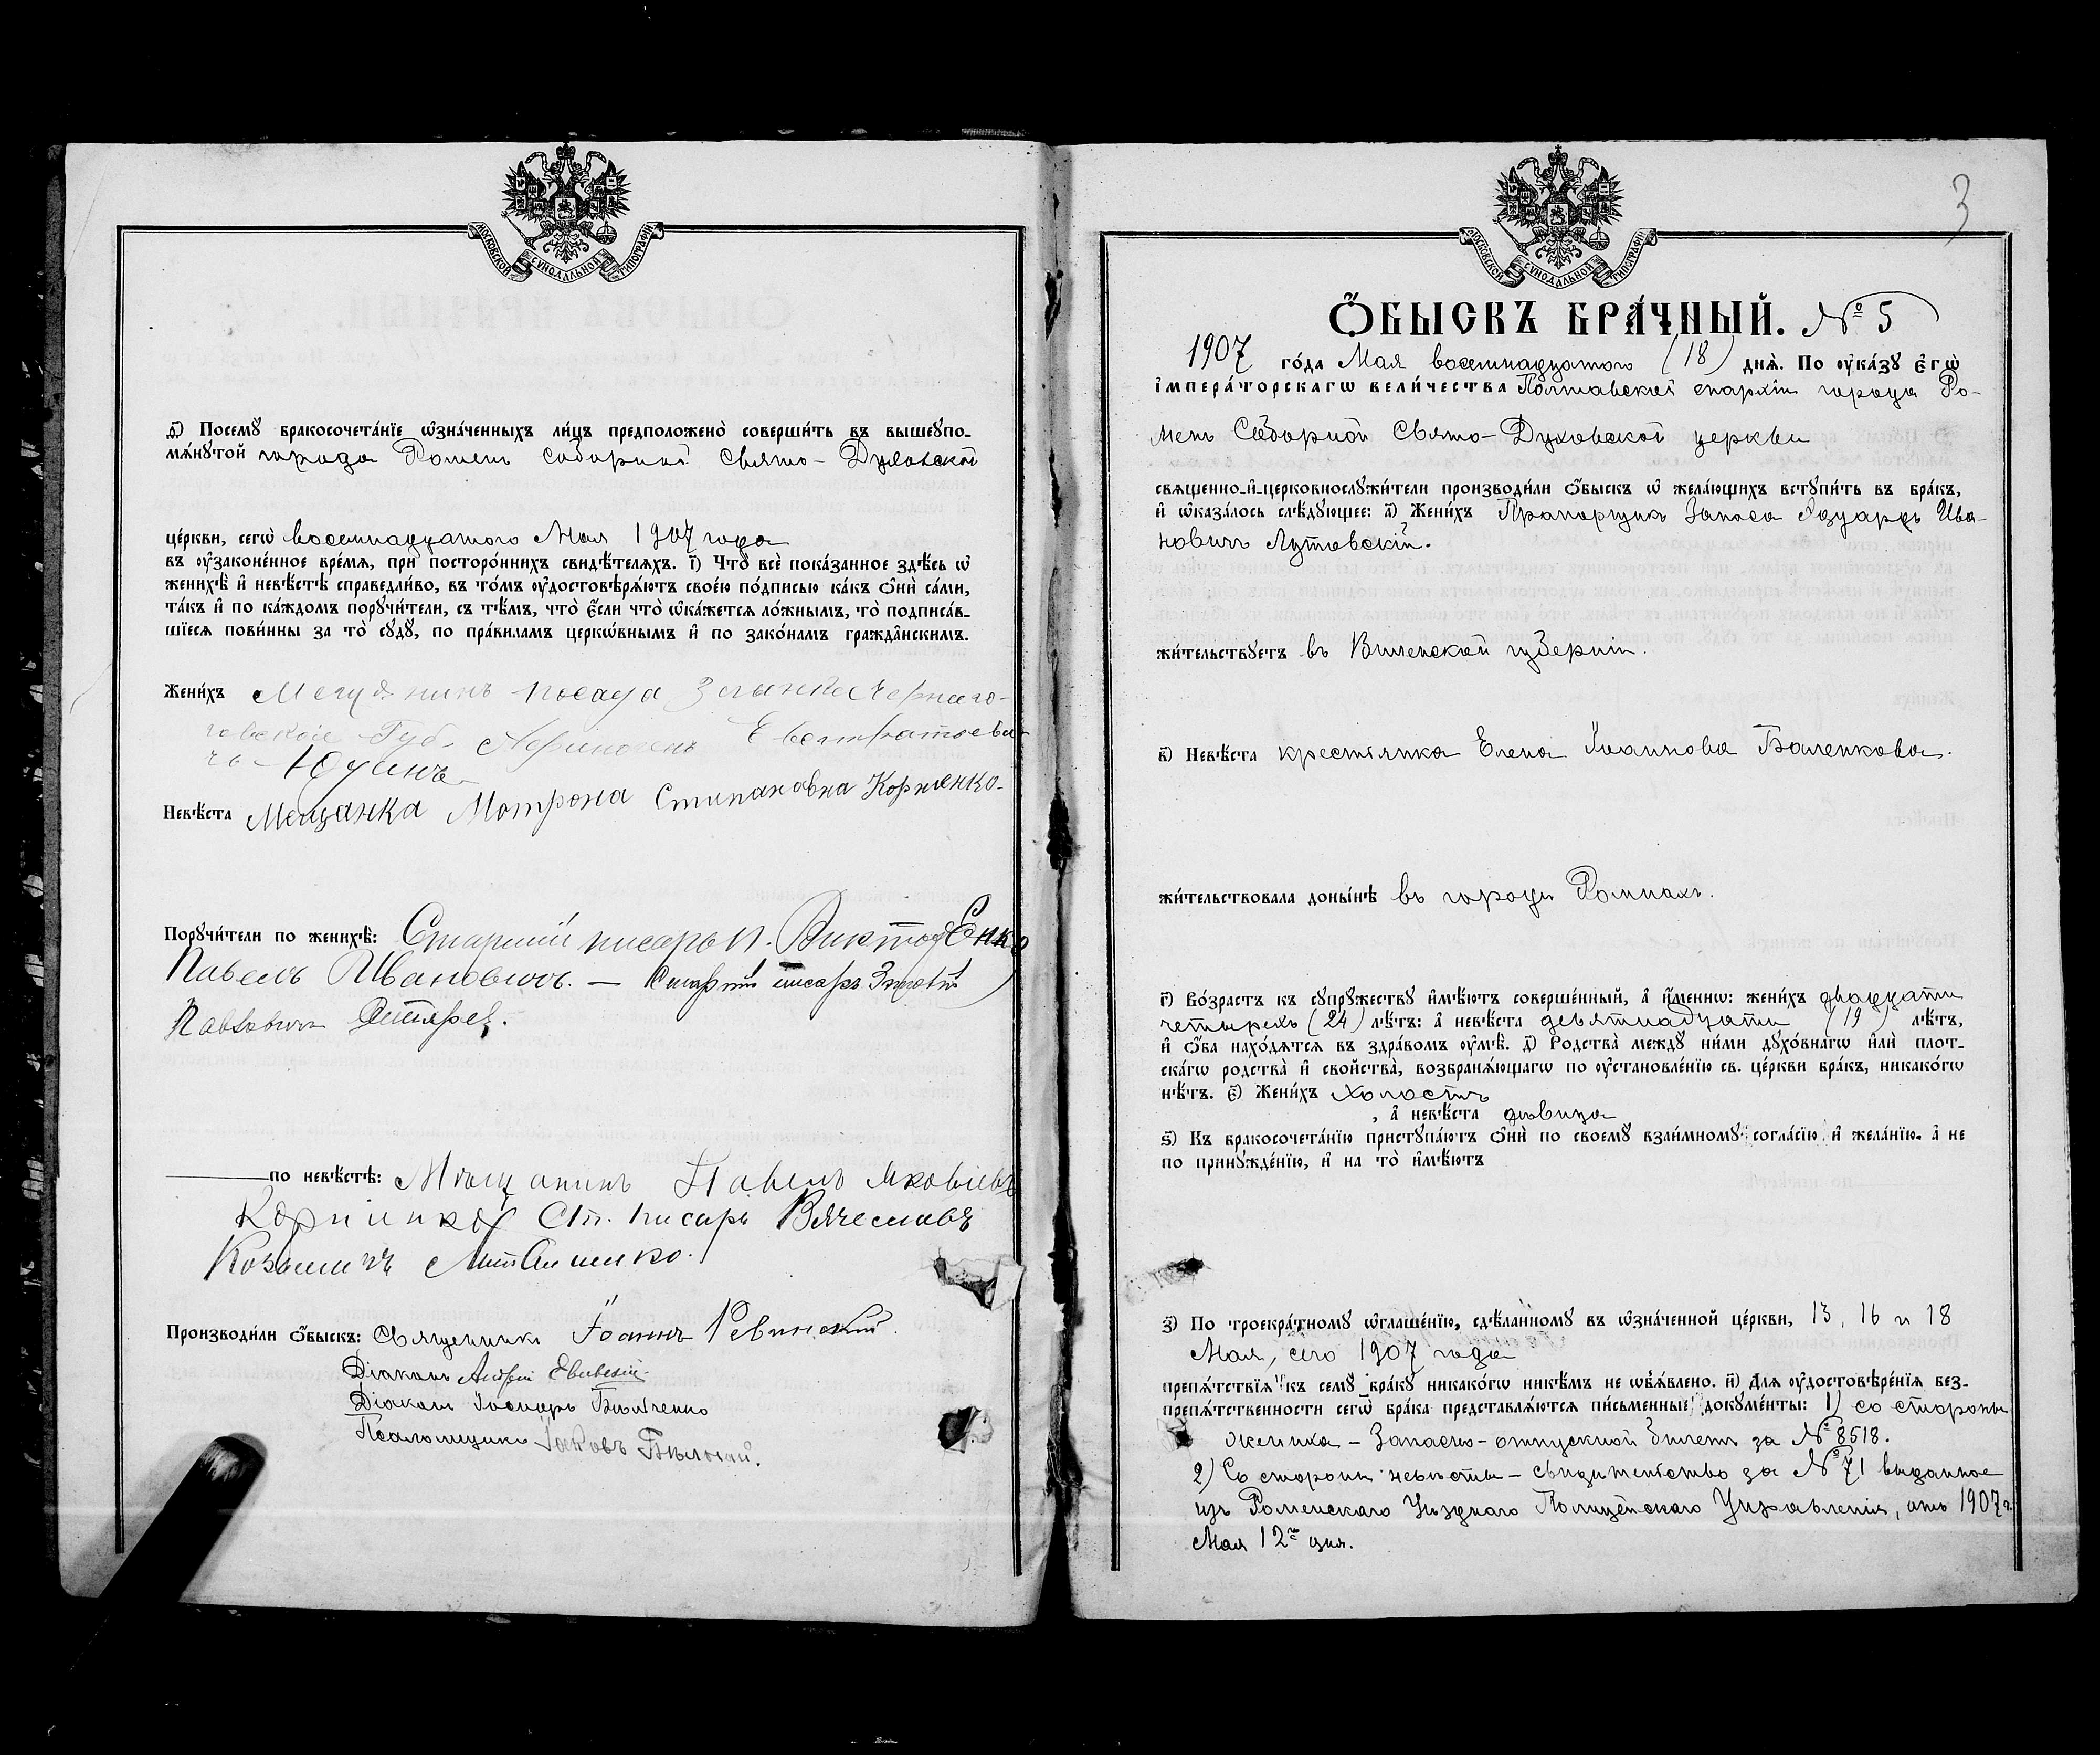 МОСКОВСКОЙ СѴНОДАЛЬНОЙ ТИПОГРАФІИ
ѳ҃) Посемꙋ̀ бракосочета́нїе ѡ҆зна́ченныхъ ли́цъ предположено̀ соверши́ть въ вышеꙋпо-
мѧ́нꙋтой города Роменъ соборной Свято-Духовской
це́ркви, сегѡ̀ восемнадцатого Мая 1907 года
въ ᲂу҆зако́ненное вре́мѧ, при посторо́ннихъ свидѣ́телѧхъ. і҃) Что̀ всѐ пока́занное здѣ́сь ѡ҆
женихѣ̀ и҆ невѣ́стѣ справедли́во, въ то́мъ ᲂу҆достовѣрѧ́ютъ свое́ю по́дписью ка́къ ѻ҆нѝ са́ми,
та́къ и҆ по ка́ждомъ порꙋчи́тели, съ тѣ́мъ, что̀ є҆́сли что̀ ѡ҆ка́жетсѧ ло́жнымъ, то̀ подписа́в-
шїесѧ пови́нны за то̀ сꙋдꙋ̀, по пра́виламъ церкѡ́внымъ и҆ по зако́намъ гражда̑нскимъ.
Жени́хъ посада Черниго-
говской Губ.
Невѣ́ста Мещанка Мотрона Степановна Корниенко.
Порꙋчи́тели по женихѣ̀: Старшій писарь
Павелъ Ивановичъ. — Старшій писарь
по невѣ́стѣ: Мѣщанинъ Павелъ Яковлевъ
Ст. писарь Вячеславъ
Производи́ли ѻ҆́быскъ: Священникъ Іоаннъ Ревинскій.
Діаконъ Андрей
Діаконъ
Псаломщикъ Іаковъ
3
МОСКОВСКОЙ СѴНОДАЛЬНОЙ ТИПОГРАФІИ
Ѻ҆́БЫСКЪ БРА́ЧНЫЙ. № 5
1907 го́да Мая восемнадцатого (18) днѧ̀. По ᲂу҆ка́зꙋ є҆гѡ̀
і҆мпера́торскагѡ вели́чества Полтавской епархіи города Ро-
менъ Соборной Свято-Духовской церкви
свѧщенно-и҆-церковнослꙋжи́тели производи́ли ѻ҆́быскъ ѡ҆ жела́ющихъ встꙋпи́ть въ бра́къ,
и҆ ѡ҆каза́лось слѣ́дꙋющее: а҃) Жени́хъ Прапорщикъ Запаса Эдуардъ Ива-
новичъ Лутовскій.
жи́тельствꙋетъ въ Виленской губерніи.
в҃) Невѣ́ста крестьянка Елена Іоаннова Баленкова.
жи́тельствовала доны́нѣ въ городѣ Ромнахъ.
г҃) Во́зрастъ къ сꙋпрꙋ́жествꙋ и҆мѣ́ютъ соверше́нный, а҆ и҆́меннѡ: жени́хъ двадцати
четырехъ (24) лѣ́тъ: а҆ невѣ́ста девятнадцати (19) лѣ́тъ,
и҆ ѻ҆́ба нахо́дѧтсѧ въ здра́вомъ ᲂу҆мѣ̀. д҃) Родства̀ междꙋ̀ ни́ми дꙋхо́внагѡ и҆лѝ плот-
ска́гѡ родства̀ и҆ свойства̀, возбранѧ́ющагѡ по ᲂу҆становле́нїю св. це́ркви бра́къ, никако́гѡ
нѣ́тъ. є҃) Жени́хъ холостъ
, а҆ невѣ́ста дѣвица
ѕ҃) Къ бракосочета́нїю пристꙋпа́ютъ ѻ҆нѝ по своемꙋ̀ взаи́мномꙋ согла́сїю и҆ жела́нїю, а҆ не
по принꙋжде́нїю, и҆ на то̀ и҆мѣ́ютъ
з҃) По троекра́тномꙋ ѡ҆глаше́нїю, сдѣ́ланномꙋ въ ѡ҆зна́ченной це́ркви, 13, 16 и 18
Мая, сего 1907 года
препѧ́тствїѧ къ семꙋ̀ бра́кꙋ никако́гѡ никѣ́мъ не ѡ҆б̾ѧ́влено. и҃) Длѧ ᲂу҆достовѣре́нїѧ без-
препѧ́тственности сегѡ̀ бра́ка представлѧ́ютсѧ пи́сьменные докꙋме́нты: 1) со стороны
жениха – Запасно-отпускной билетъ за № 8518.
2) Со стороны невѣсты – свидѣтельство за № 71 выданное
изъ Роменскаго Уѣзднаго Полицейскаго Управленія, отъ 1907 г.
Мая 12го дня.